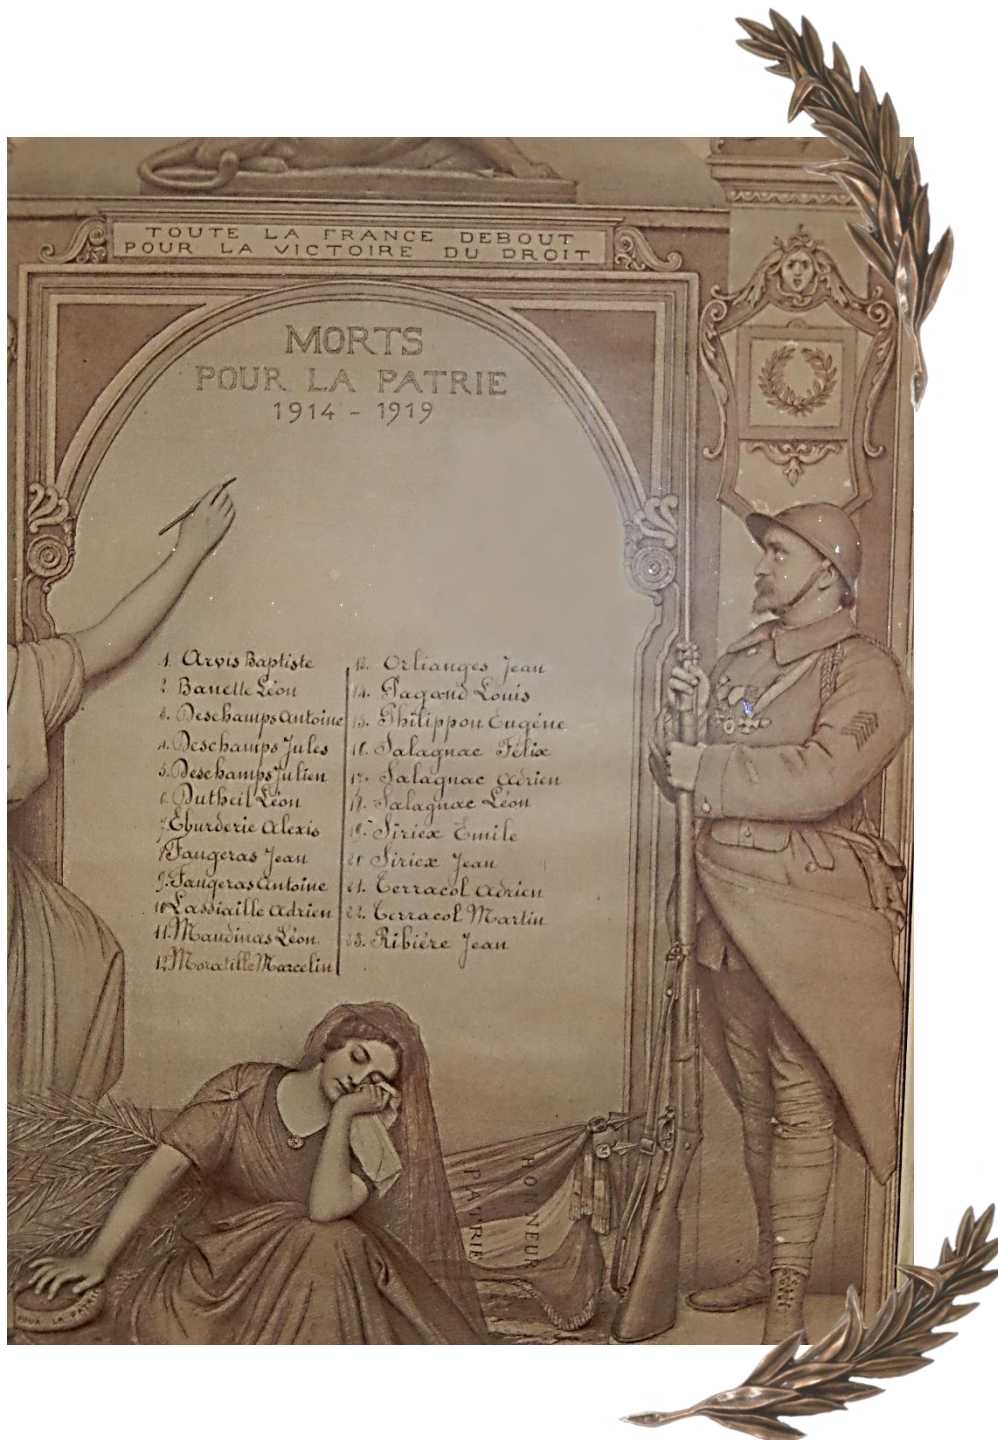 TOUTE LA FRANCE DEBOUT
POUR LA VICTOIRE DU DROIT
MORTS
POUR LA PATRIE
1914 - 1919
1. Arvis Baptiste
2. Banette Léon
3. Deschamps Antoine
4. Deschamps Jules
5. Deschamps Julien
6. Dutheil Léon
7. Eburderie Alexis
8. Faugeras Jean
9. Faugeras Antoine
10. Lassiaille Adrien
11. Maudinas Léon
12. Moratille Marcelin
13. Orlianges Jean
14. Pagand Louis
15. Philippon Eugéne
16. Salagnac Félix
17. Salagnac Adrien
18. Salagnac Léon
19. Siriex Emile
20 Siriex Jean
21. Terracol Adrien
22. Terracol Martin
23. Ribiére Jean
HONNEUR
PATRIE
POUR LA PATRIE